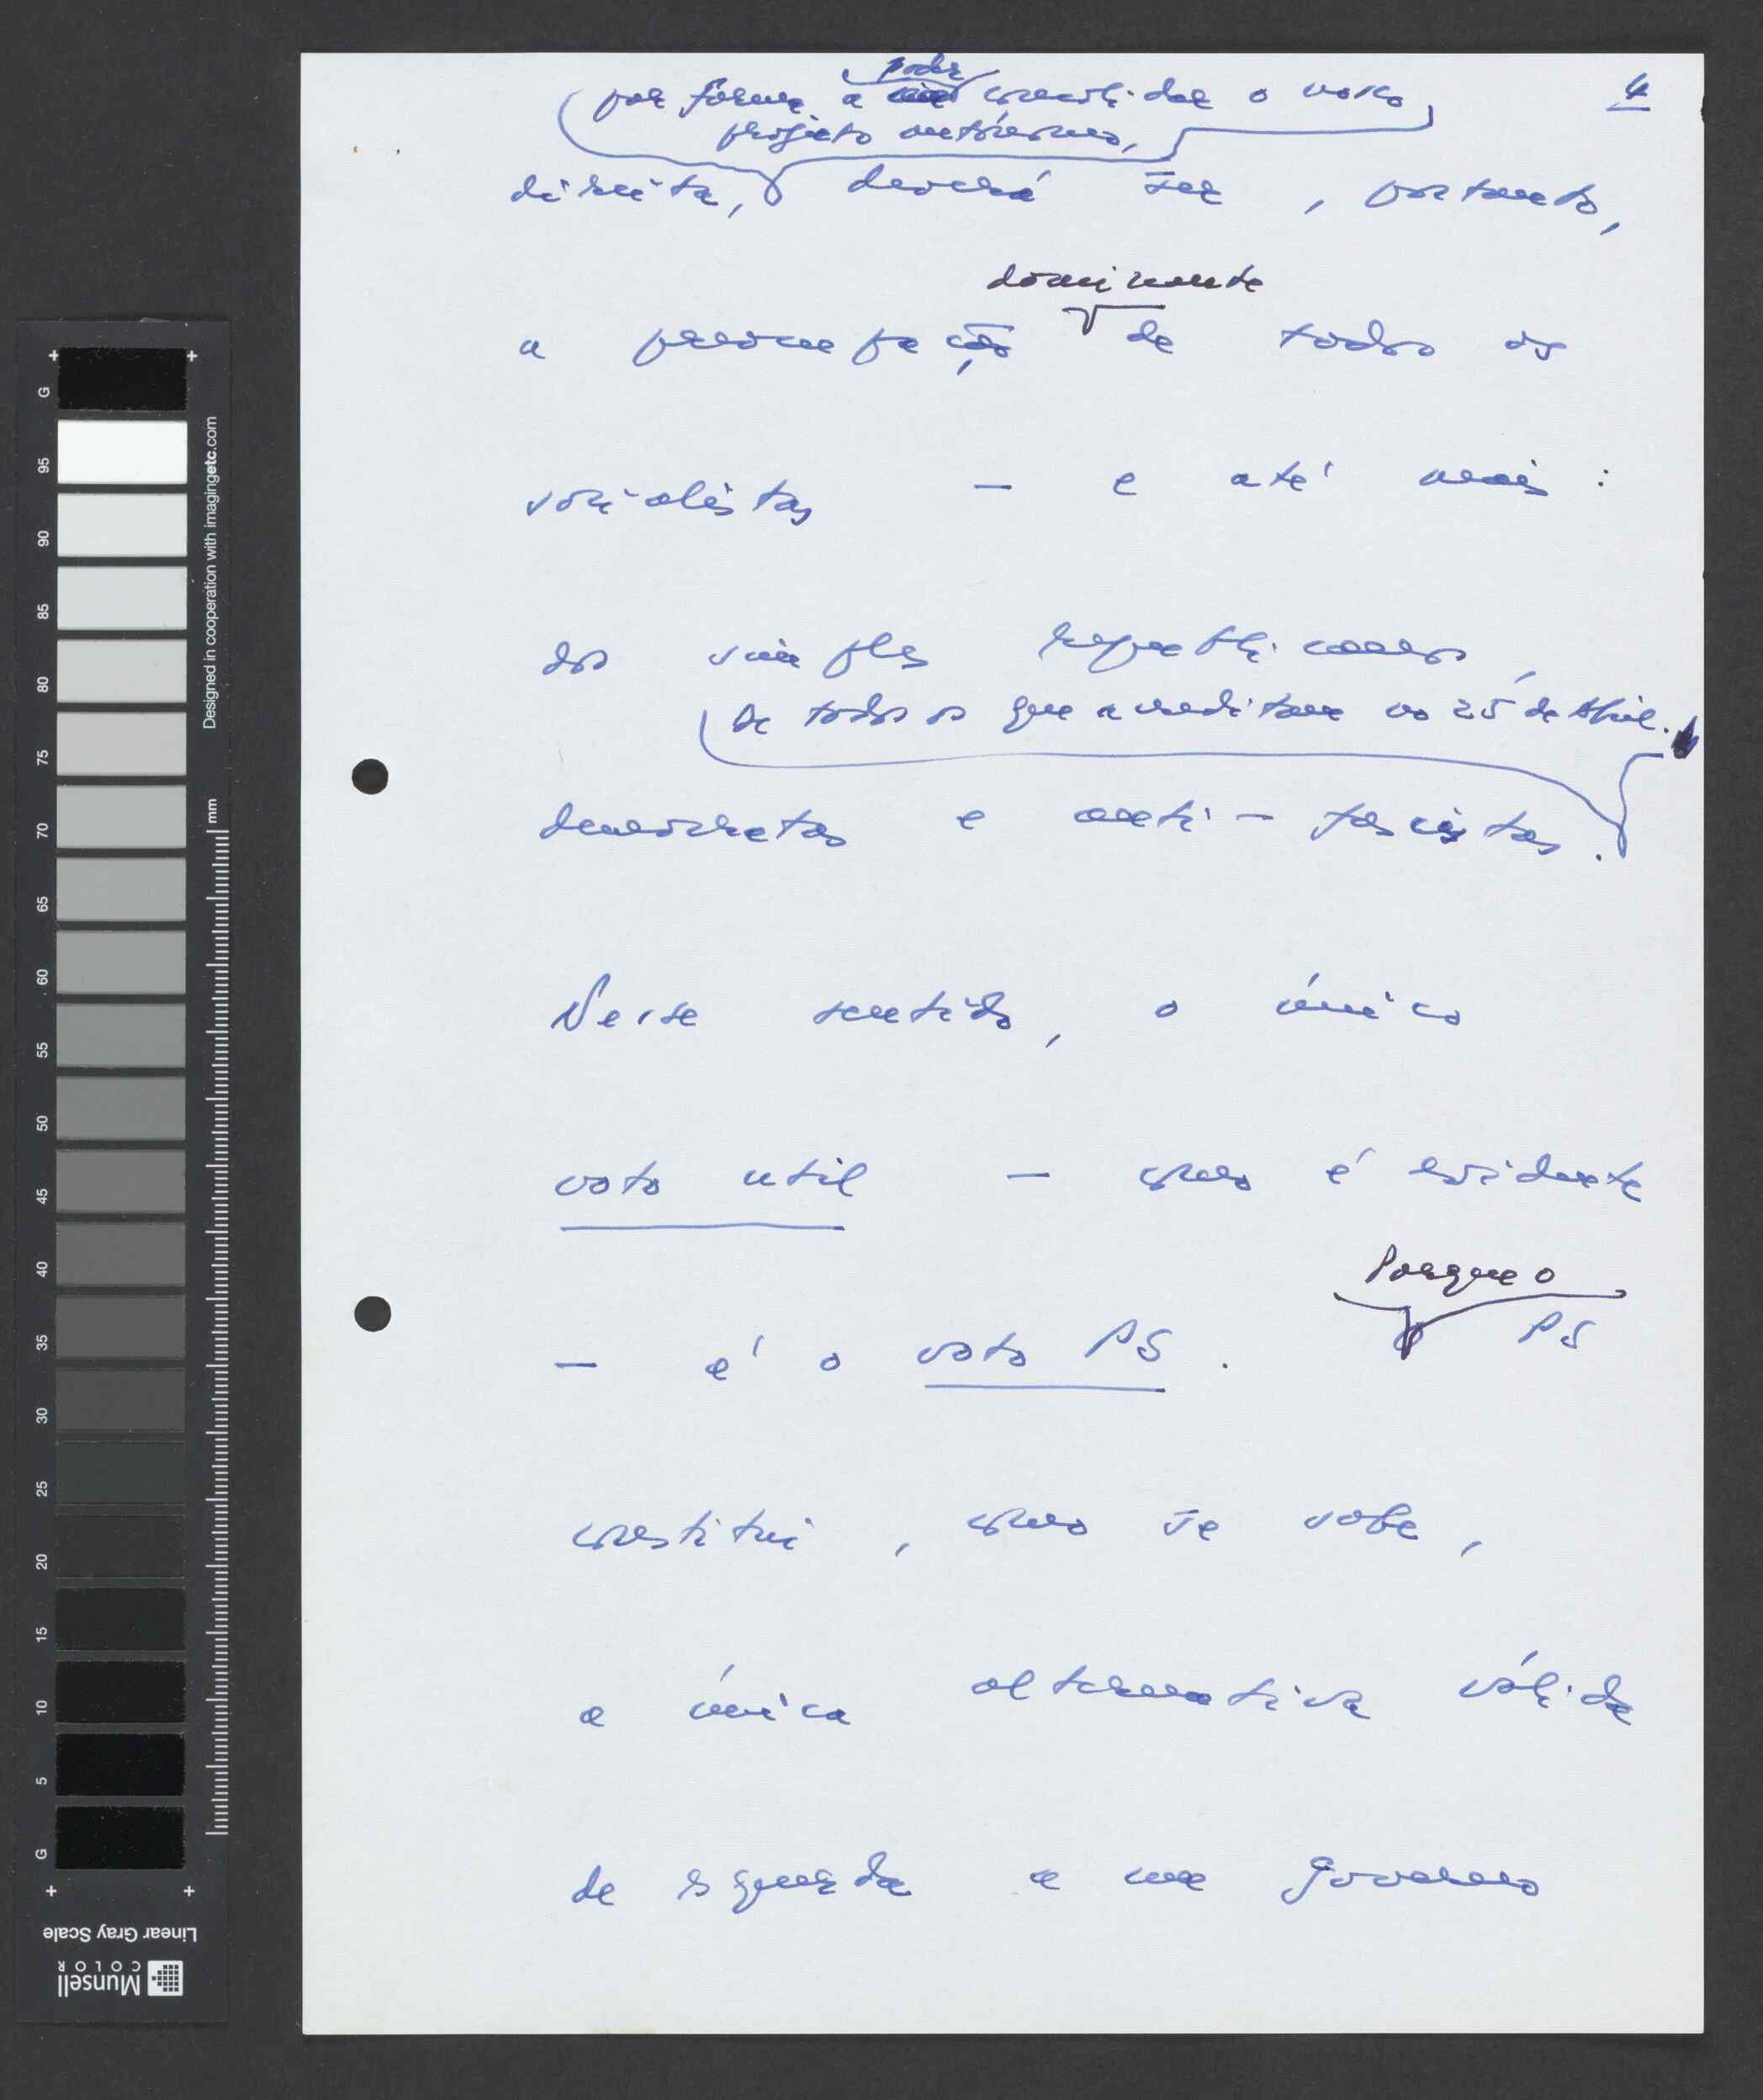 4
poder
por forma a consolidar o nosso
projecto autónomo,
direita, deverá ser, portanto,
dominante
a preocupação de todos os
socialistas — e até mais :
dos simples republicanos,
de todos os que acreditam no 25 de Abril.
democratas e anti-fascistas.
Nesse sentido, o único
voto util — como é evidente
Porque o
— é o voto PS. o PS
constitui, como se sabe,
a única alternativa válida
de esquerda a um governo
Designed in cooperation with imagingetc.com
mm
G
95
90
85
80
75
70
65
60
55
50
45
40
35
30
25
20
15
10
5
G
Linear Gray Scale
Munsell
COLOR